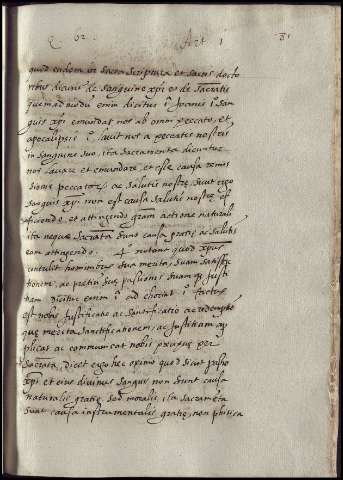 Q 62 Art i 81
quod eadem in sacra scriptura et sacris docto
ribus dicunt de sanguine xpi et de sacratis
quemadmodū enim dicitur i Joanis i san
guis xpi emundat nos ab omni peccato, et,
apocalipsis i lauit nos a peccatis nostris
in sanguine suo, ita sacramenta dicuntur
nos lauare et emundare, et esse causa remis
sionis peccatorū ac salutis nostrę, sicut ergo
sanguis xpi non est causa salutis nostrę ef
ficiendo et attingendo gram actione naturali
ita neque sacrata sunt causa gratię ac salutis
eam attingendo. notant quod xpus
contulit hominibus sua merita, suam satisfa
ctionem, ac pretiū suę passionis suam iusti
tiam dicitur enim i ad chorint i factus
est nobis iustificatio ac sanctificatio ac redemptio
que merita sanctificationem, ac justitiam ap
plicat ac communicat nobis per
sacrata, dicet ergo hec opinio quod sicut passio
xpi et eius diuinus sanguis non sunt causa
naturalis gratię sed moralis, ita sacrameta
sunt causa instrumentalis gratię, non phisica